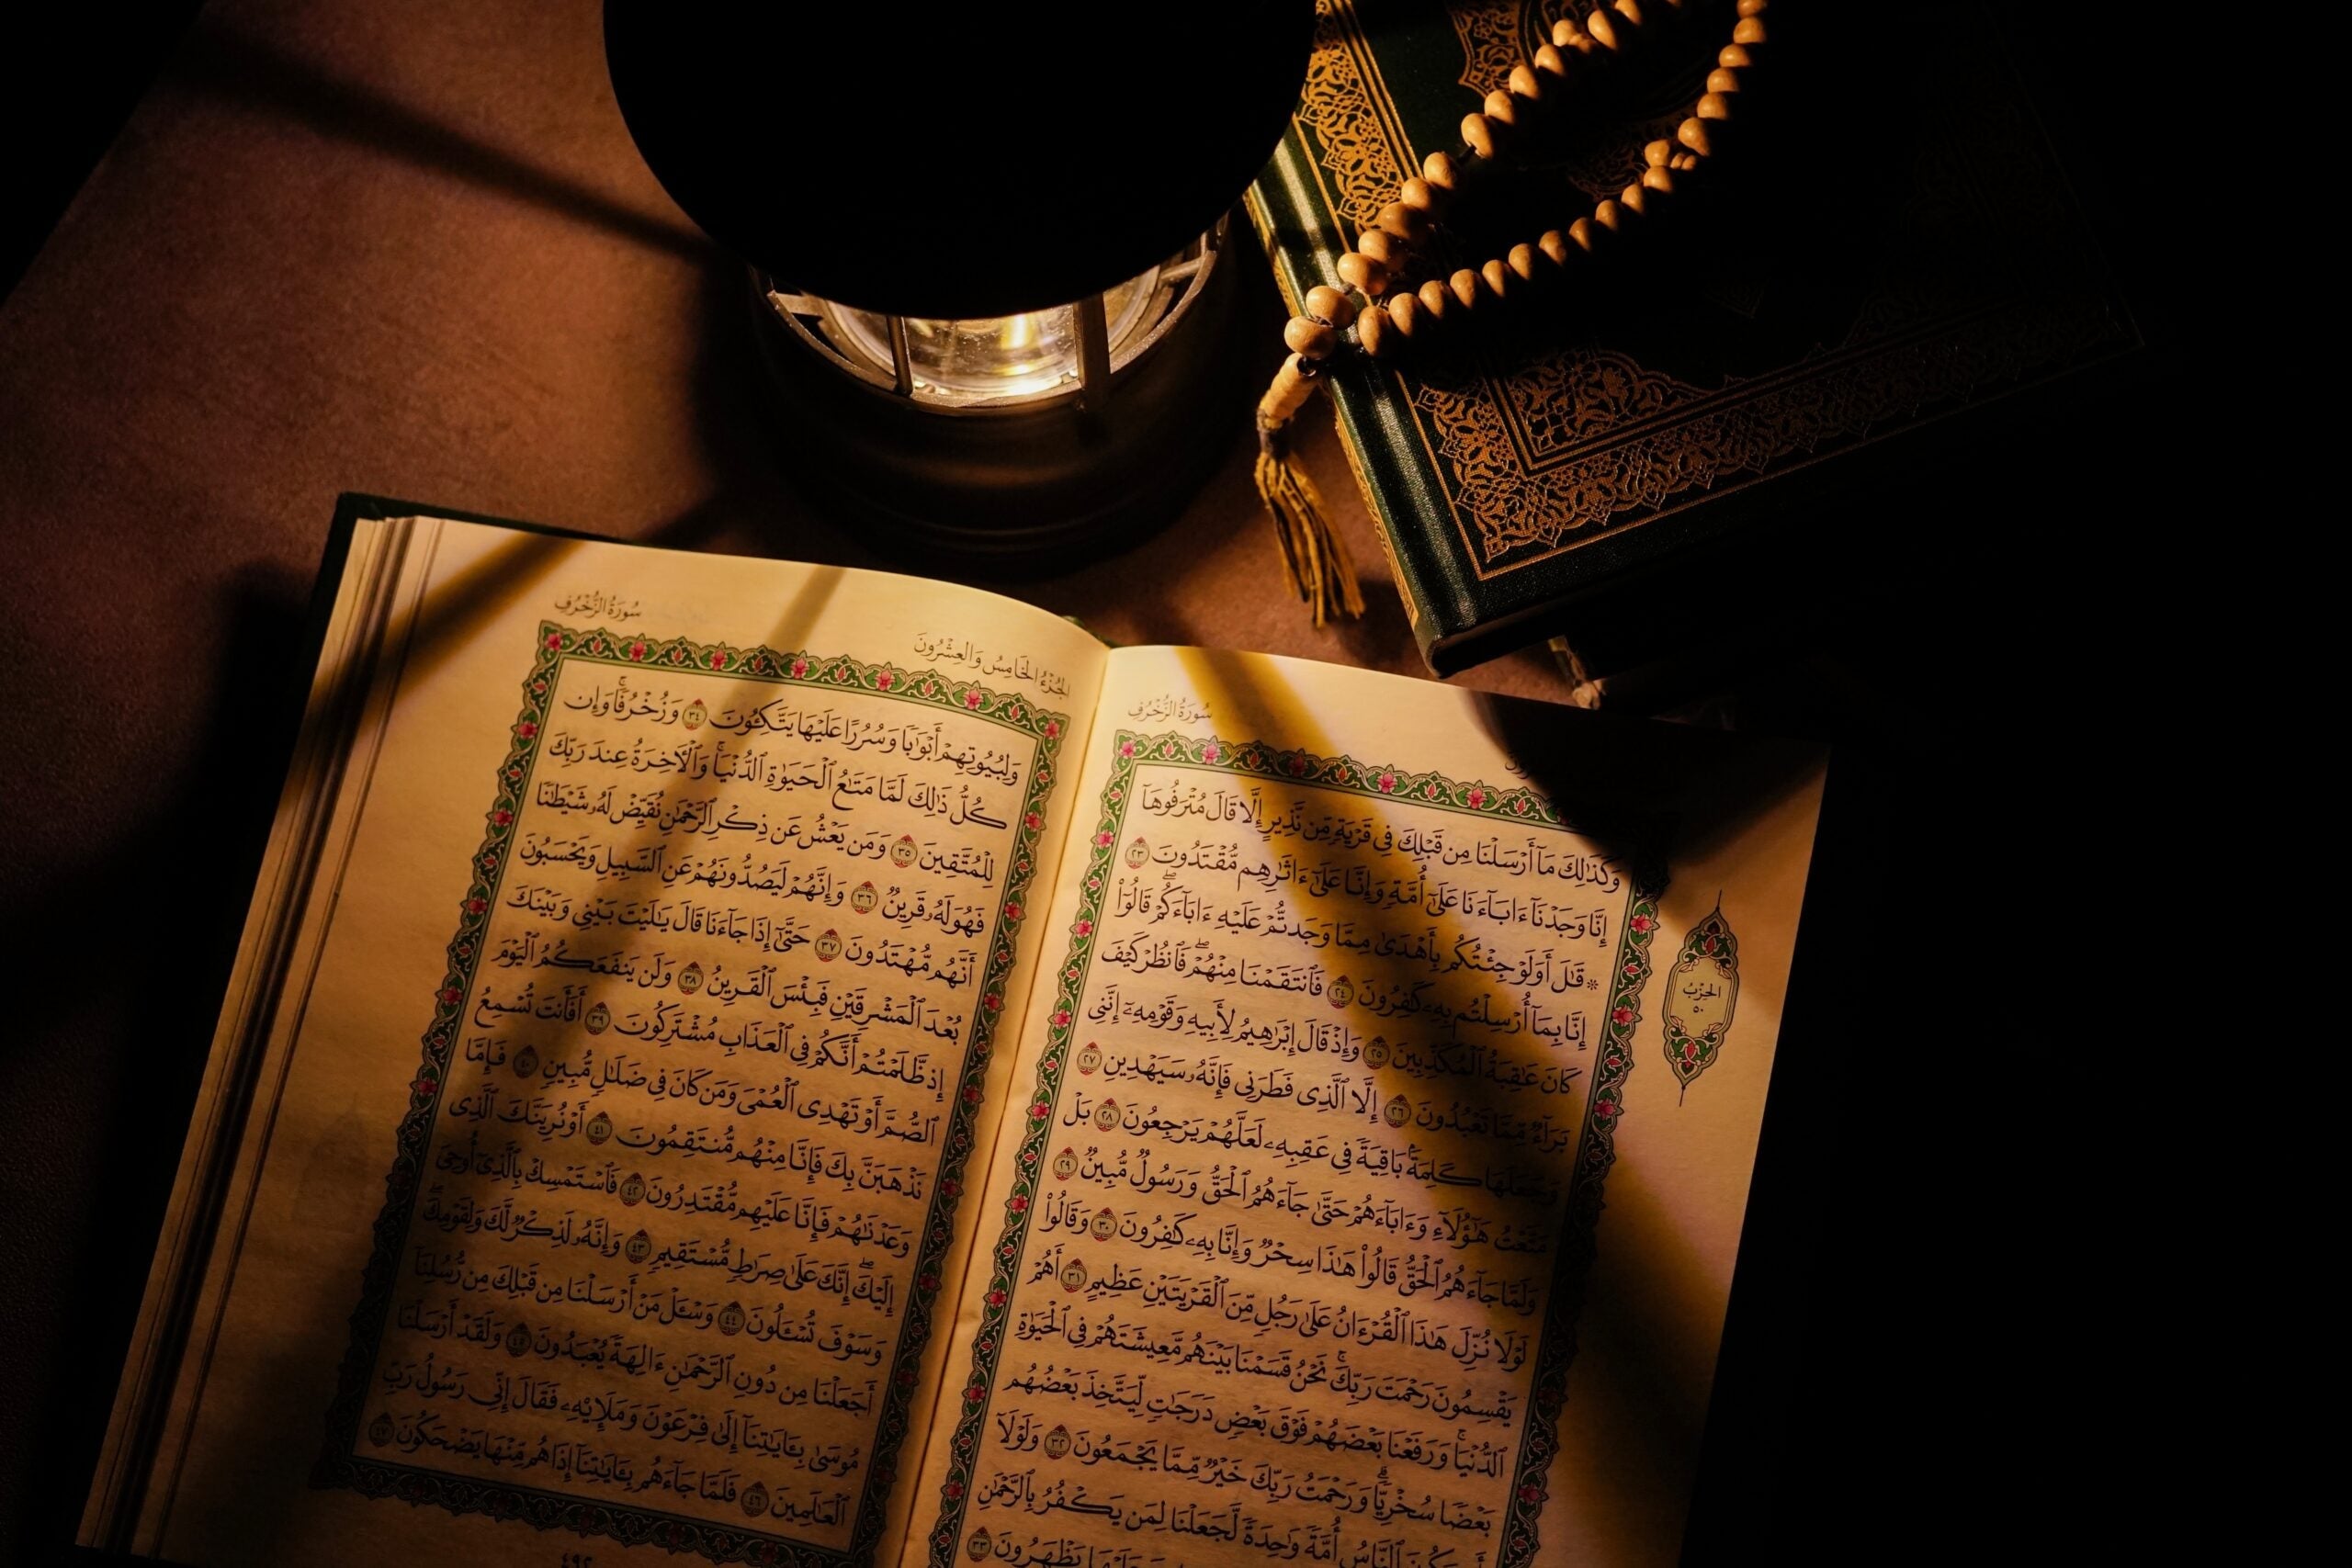 سُورَةُ الزُّخْرُفِ
وَكَذَٰلِكَ مَآ أَرْسَلْنَا مِن قَبْلِكَ فِى قَرْيَةٍ مِّن نَّذِيرٍ إِلَّا قَالَ مُتْرَفُوهَآ
إِنَّا وَجَدْنَآ ءَابَآءَنَا عَلَىٰٓ أُمَّةٍ وَإِنَّا عَلَىٰٓ ءَاثَٰرِهِم مُّقْتَدُونَ ٢٣
* قَٰلَ أَوَلَوْ جِئْتُكُم بِأَهْدَىٰ مِمَّا وَجَدتُّمْ عَلَيْهِ ءَابَآءَكُمْ ۖ قَالُوٓا۟
إِنَّا بِمَآ أُرْسِلْتُم بِهِۦ كَٰفِرُونَ ٢٤ فَٱنتَقَمْنَا مِنْهُمْ ۖ فَٱنظُرْ كَيْفَ
كَانَ عَٰقِبَةُ ٱلْمُكَذِّبِينَ ٢٥ وَإِذْ قَالَ إِبْرَٰهِيمُ لِأَبِيهِ وَقَوْمِهِۦٓ إِنَّنِى
بَرَآءٌ مِّمَّا تَعْبُدُونَ ٢٦ إِلَّا ٱلَّذِى فَطَرَنِى فَإِنَّهُۥ سَيَهْدِينِ ٢٧
وَجَعَلَهَا كَلِمَةًۢ بَاقِيَةً فِى عَقِبِهِۦ لَعَلَّهُمْ يَرْجِعُونَ ٢٨ بَلْ
مَتَّعْتُ هَٰٓؤُلَآءِ وَءَابَآءَهُمْ حَتَّىٰ جَآءَهُمُ ٱلْحَقُّ وَرَسُولٌ مُّبِينٌ ٢٩
وَلَمَّا جَآءَهُمُ ٱلْحَقُّ قَالُوا۟ هَٰذَا سِحْرٌ وَإِنَّا بِهِۦ كَٰفِرُونَ ٣٠ وَقَالُوا۟
لَوْلَا نُزِّلَ هَٰذَا ٱلْقُرْءَانُ عَلَىٰ رَجُلٍ مِّنَ ٱلْقَرْيَتَيْنِ عَظِيمٍ ٣١ أَهُمْ
يَقْسِمُونَ رَحْمَتَ رَبِّكَ ۚ نَحْنُ قَسَمْنَا بَيْنَهُم مَّعِيشَتَهُمْ فِى ٱلْحَيَوٰةِ
ٱلدُّنْيَا ۚ وَرَفَعْنَا بَعْضَهُمْ فَوْقَ بَعْضٍ دَرَجَٰتٍ لِّيَتَّخِذَ بَعْضُهُم
بَعْضًا سُخْرِيًّا ۗ وَرَحْمَتُ رَبِّكَ خَيْرٌ مِّمَّا يَجْمَعُونَ ٣٢ وَلَوْلَآ
ٱلنَّاسُ أُمَّةً وَٰحِدَةً لَّجَعَلْنَا لِمَن يَكْفُرُ بِٱلرَّحْمَٰنِ
يَظْهَرُونَ ٣٣
الحِزْبُ
٥٠
الجُزْءُ الخَامِسُ وَالعِشْرُونَ
سُورَةُ الزُّخْرُفِ
وَلِبُيُوتِهِمْ أَبْوَٰبًا وَسُرُرًا عَلَيْهَا يَتَّكِـُٔونَ ٣٤ وَزُخْرُفًا ۚ وَإِن
كُلُّ ذَٰلِكَ لَمَّا مَتَٰعُ ٱلْحَيَوٰةِ ٱلدُّنْيَا ۚ وَٱلْـَٔاخِرَةُ عِندَ رَبِّكَ
لِلْمُتَّقِينَ ٣٥ وَمَن يَعْشُ عَن ذِكْرِ ٱلرَّحْمَٰنِ نُقَيِّضْ لَهُۥ شَيْطَٰنًا
فَهُوَ لَهُۥ قَرِينٌ ٣٦ وَإِنَّهُمْ لَيَصُدُّونَهُمْ عَنِ ٱلسَّبِيلِ وَيَحْسَبُونَ
أَنَّهُم مُّهْتَدُونَ ٣٧ حَتَّىٰٓ إِذَا جَآءَنَا قَالَ يَٰلَيْتَ بَيْنِى وَبَيْنَكَ
بُعْدَ ٱلْمَشْرِقَيْنِ فَبِئْسَ ٱلْقَرِينُ ٣٨ وَلَن يَنفَعَكُمُ ٱلْيَوْمَ
إِذ ظَّلَمْتُمْ أَنَّكُمْ فِى ٱلْعَذَابِ مُشْتَرِكُونَ ٣٩ أَفَأَنتَ تُسْمِعُ
ٱلصُّمَّ أَوْ تَهْدِى ٱلْعُمْىَ وَمَن كَانَ فِى ضَلَٰلٍ مُّبِينٍ ٤٠ فَإِمَّا
نَذْهَبَنَّ بِكَ فَإِنَّا مِنْهُم مُّنتَقِمُونَ ٤١ أَوْ نُرِيَنَّكَ ٱلَّذِى
وَعَدْنَٰهُمْ فَإِنَّا عَلَيْهِم مُّقْتَدِرُونَ ٤٢ فَٱسْتَمْسِكْ بِٱلَّذِىٓ أُوحِىَ
إِلَيْكَ ۖ إِنَّكَ عَلَىٰ صِرَٰطٍ مُّسْتَقِيمٍ ٤٣ وَإِنَّهُۥ لَذِكْرٌ لَّكَ وَلِقَوْمِكَ ۖ
وَسَوْفَ تُسْـَٔلُونَ ٤٤ وَسْـَٔلْ مَنْ أَرْسَلْنَا مِن قَبْلِكَ مِن رُّسُلِنَآ
أَجَعَلْنَا مِن دُونِ ٱلرَّحْمَٰنِ ءَالِهَةً يُعْبَدُونَ ٤٥ وَلَقَدْ أَرْسَلْنَا
مُوسَىٰ بِـَٔايَٰتِنَآ إِلَىٰ فِرْعَوْنَ وَمَلَإِي۟هِۦ فَقَالَ إِنِّى رَسُولُ رَبِّ
ٱلْعَٰلَمِينَ ٤٦ فَلَمَّا جَآءَهُم بِـَٔايَٰتِنَآ إِذَا هُم مِّنْهَا يَضْحَكُونَ ٤٧
٤٩٢